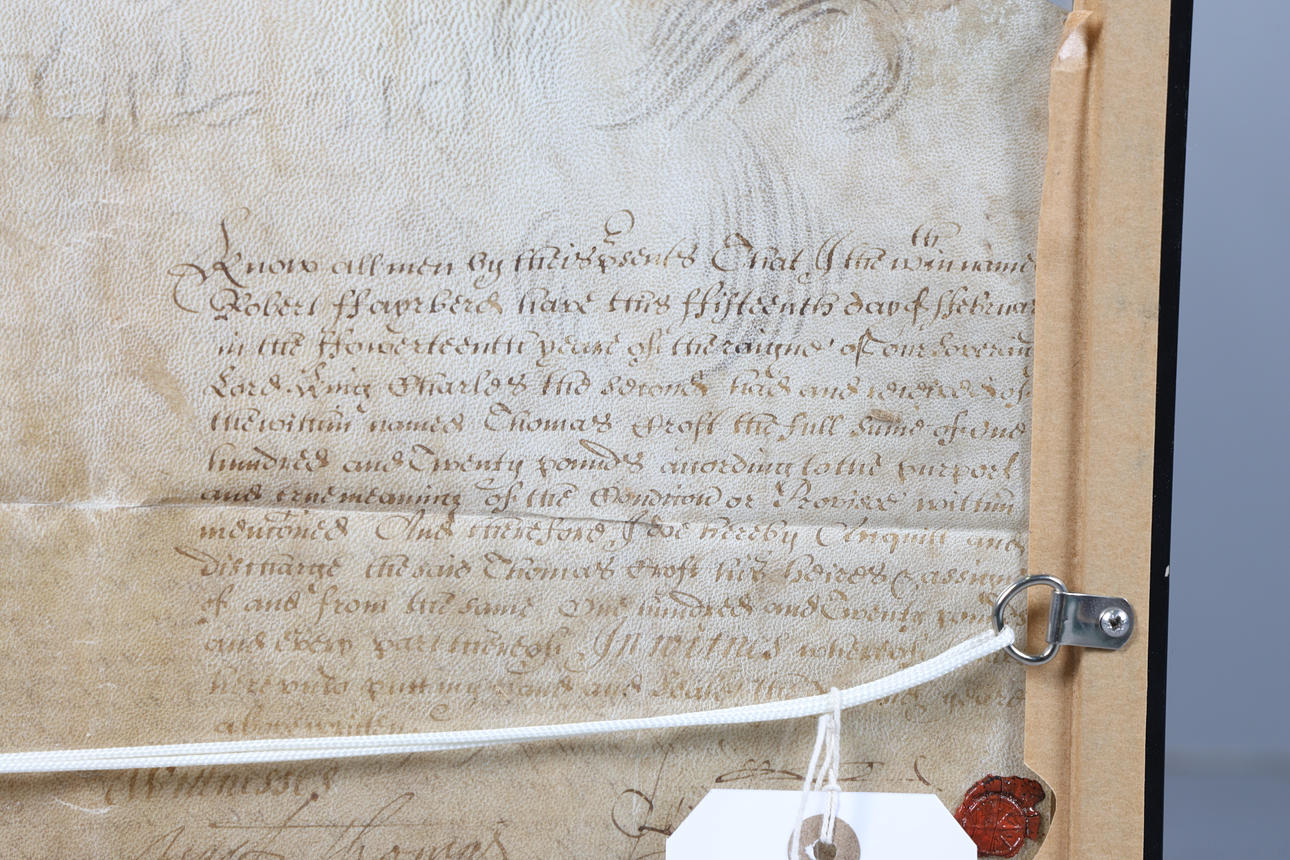 Know all men by theis p'sents That I the wthin name
Robert ffayrberd have this ffifteenth day of ffebruar
in the ffowerteenth yeare of the raigne of our Soveraign
Lord King Charles the Second had and received of
the within named Thomas Croft the full sume of One
hundred and Twenty pounds according to the purport
and true meaning of the Condition or Provisoe within
mentioned And therefore I doe hereby Acquitt and
discharge the said Thomas Croft his heires & assignes
of and from the same One hundred and Twenty pounds
and every part thereof In witnes whereof
hereunto putt my hand and Seale the yeare
above written
Witnesses
Thomas